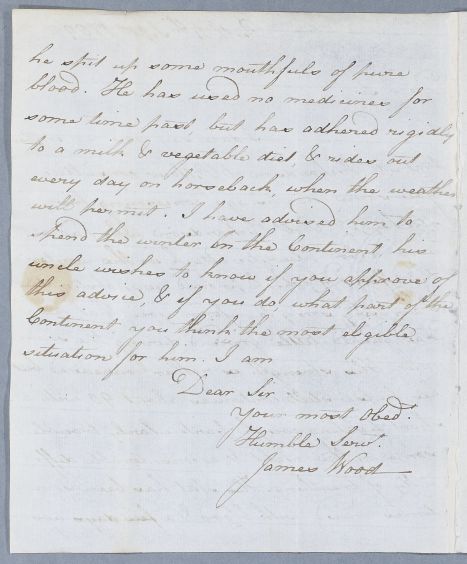 he spit up some mouthfuls of pure
blood. He has used no medicines for
some time past but has adhered rigidly
to a milk & vegetable diet & rides out
every day on horseback, when the weather
will permit. I have advised him to
spend the winter on the Continent his
uncle wishes to know if you approve of
this advice, & if you do, what part of the
Continent you think the most eligible
situation for him. I am
Dear Sir
Your most obedt.
Humble Servt.
James Wood